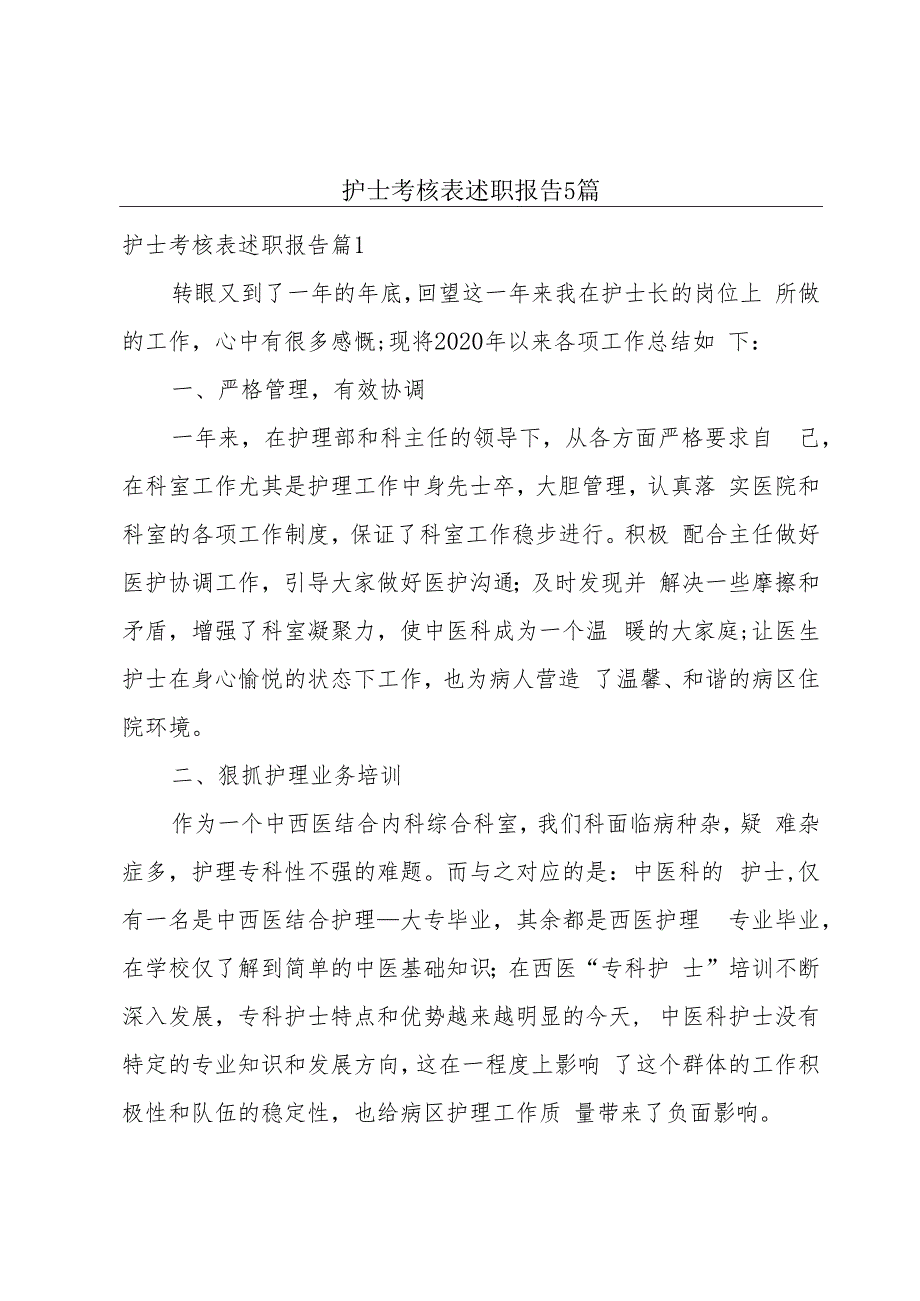 护士考核表述职报告5篇
护士考核表述职报告篇1
转眼又到了一年的年底,回望这一年来我在护士长的岗位上 所做
的工作，心中有很多感慨;现将2020年以来各项工作总结如 下：
一、严格管理，有效协调
一年来，在护理部和科主任的领导下，从各方面严格要求自 己，
在科室工作尤其是护理工作中身先士卒，大胆管理，认真落 实医院和
科室的各项工作制度，保证了科室工作稳步进行。积极 配合主任做好
医护协调工作，引导大家做好医护沟通；及时发现并 解决一些摩擦和
矛盾，增强了科室凝聚力，使中医科成为一个温 暖的大家庭;让医生
护士在身心愉悦的状态下工作，也为病人营造 了温馨、和谐的病区住
院环境。
二、狠抓护理业务培训
作为一个中西医结合内科综合科室，我们科面临病种杂，疑 难杂
症多，护理专科性不强的难题。而与之对应的是：中医科的 护士,仅
有一名是中西医结合护理—大专毕业，其余都是西医护理 专业毕业，
在学校仅了解到简单的中医基础知识；在西医“专科护 士”培训不断
深入发展，专科护士特点和优势越来越明显的今天, 中医科护士没有
特定的专业知识和发展方向,这在一程度上影响 了这个群体的工作积
极性和队伍的稳定性，也给病区护理工作质 量带来了负面影响。